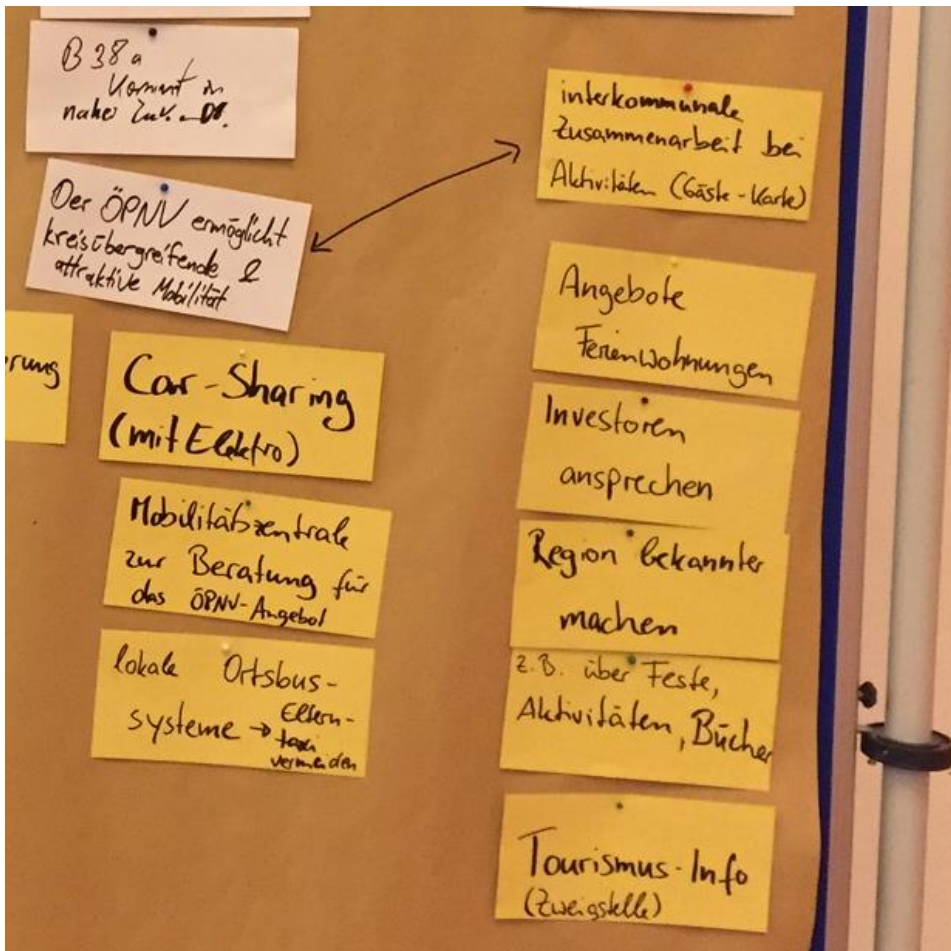 B 38a
kommt in
naher
Der ÖPNV ermöglicht
kreisübergreifende &
attraktive Mobilität
rung
Car-Sharing
(mit Elektro)
Mobilitätszentrale
zur Beratung für
das ÖPNV-Angebot
lokale Ortsbus-
systeme → Eltern-
taxi
vermeiden
interkommunale
Zusammenarbeit bei
Aktivitäten (Gäste-Karte)
Angebote
Ferienwohnungen
Investoren
ansprechen
Region bekannter
machen
z.B. über Feste,
Aktivitäten, Bücher
Tourismus-Info
(Zweigstelle)